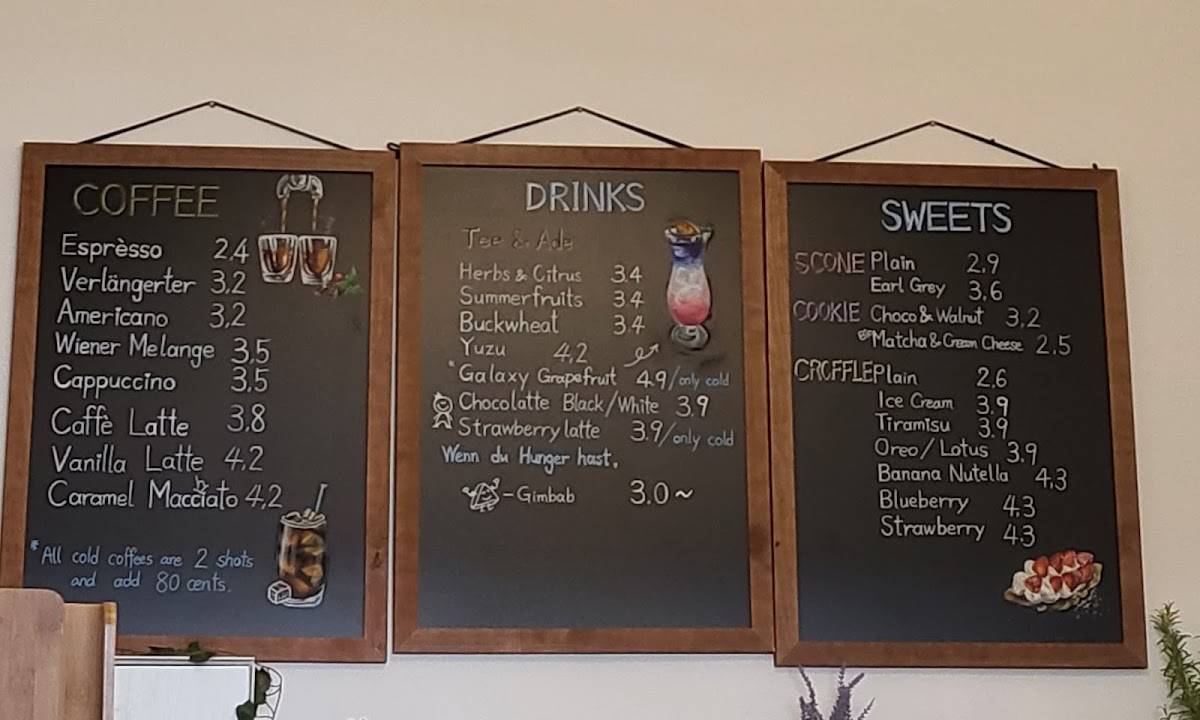 COFFEE
Esprèsso 2,4
Verlängerter 3,2
Americano 3,2
Wiener Melange 3,5
Cappuccino 3,5
Caffè Latte 3,8
Vanilla Latte 4,2
Caramel Macciato 4,2
*All cold coffees are 2 shots
and add 80 cents.
DRINKS
Tee & Ade
Herbs & Citrus 3.4
Summerfruits 3.4
Buckwheat 3.4
Yuzu 4,2
*Galaxy Grapefruit 4.9/only cold
Chocolatte Black/White 3,9
Strawberry latte 3.9/only cold
Wenn du Hunger hast,
-Gimbab 3.0~
SWEETS
SCONE Plain 2,9
Earl Grey 3,6
COOKIE Choco & Walnut 3,2
Matcha & Cream Cheese 2.5
CROFFLE Plain 2.6
Ice Cream 3,9
Tiramisu 3.9
Oreo/Lotus 3,9
Banana Nutella 4,3
Blueberry 4,3
Strawberry 4.3